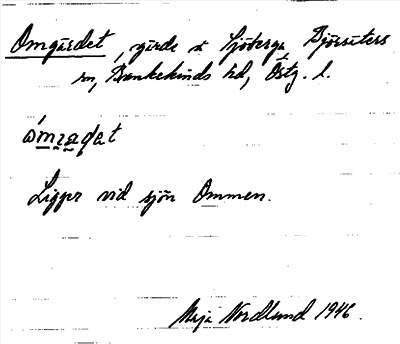 Omgärdet, gärde å Sjöberga Björsäters
sn, Bankekinds hd, Östg. l.
Ligger vid sjön Ommen.
Maja Nordlund 1946.